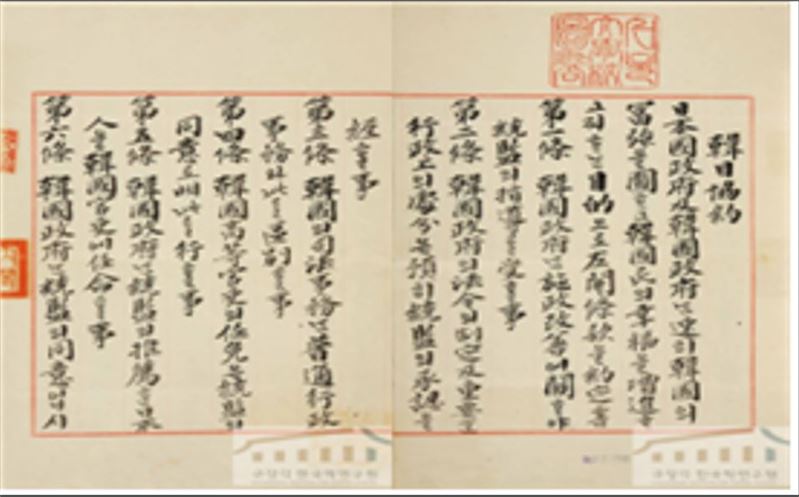 韓日協約
日本國政府及韓國政府는速히韓國의
富强을圖ᄒᆞ고韓國民의幸福을增進코
져ᄒᆞ는目的으로左開條款을約定홈
第一條 韓國政府는施政改善에關ᄒᆞ야
統監의指導를受ᄒᆞᆯ事
第二條 韓國政府의法令의制定及重要ᄒᆞᆫ
行政上의處分은預히統監의承認을
經ᄒᆞᆯ事
第三條 韓國의司法事務는普通行政
事務와此를區別ᄒᆞᆯ事
第四條 韓國高等官吏의任免은統監의
同意로써此를行ᄒᆞᆯ事
第五條 韓國政府는統監의推薦ᄒᆞᆫ日本
人을韓國官吏에任命ᄒᆞᆯ事
第六條 韓國政府는統監의同意업시
규장각 한국학연구원
규장각 한국학연구원